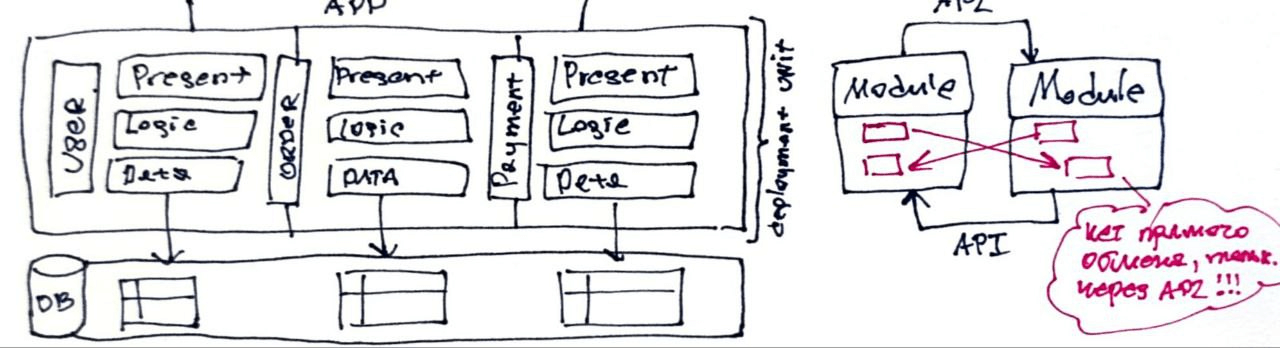 APP
USER
Present
Logic
Data
ORDER
Present
Logic
DATA
Payment
Present
Logic
Data
deployment unit
DB
API
Module
Module
API
нет прямого
обмена, тольк.
через API !!!